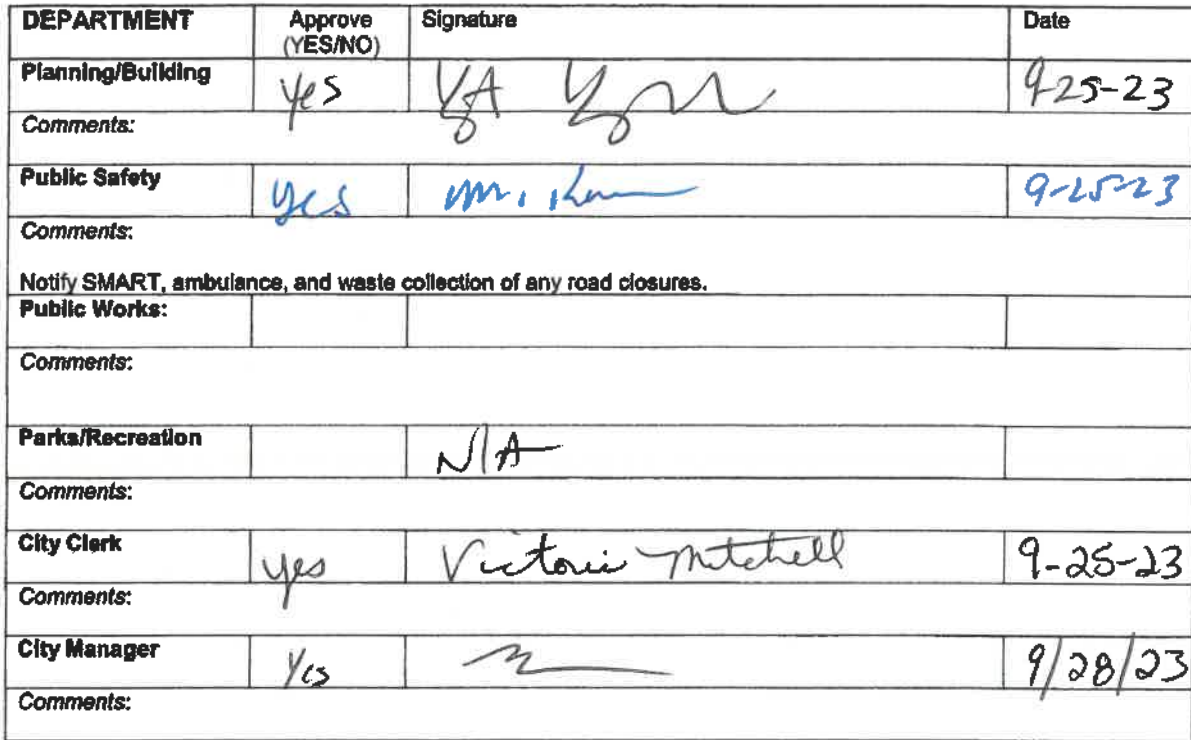 DEPARTMENT Approve (YES/NO) Signature Date
Planning/Building yes 9-25-23
Comments:
Public Safety yes 9-25-23
Comments:
Notify SMART, ambulance, and waste collection of any road closures.
Public Works:
Comments:
Parks/Recreation N/A
Comments:
City Clerk yes Victoria Mitchell 9-25-23
Comments:
City Manager Yes 9/28/23
Comments: